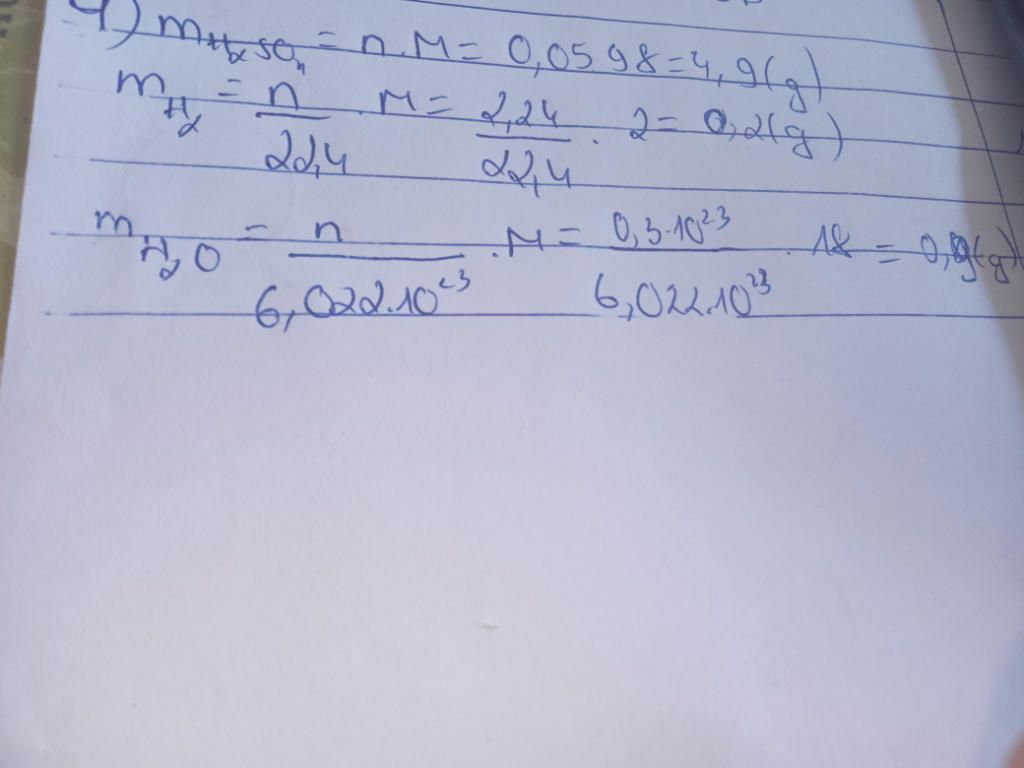 4) mH₂SO₄ = n.M = 0,05.98 = 4,9(g)
mH₂ = n/22,4 . M = 2,24/22,4 . 2 = 0,2(g)
mH₂O = n/6,022.10²³ . M = 0,3.10²³/6,022.10²³ . 18 = 0,9(g)